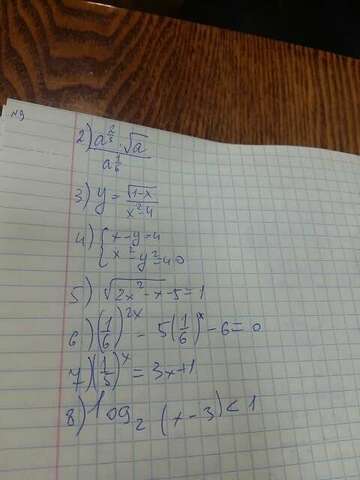 N9
2) a^{2/3} · √a / a^{1/6}
3) y = √(1-x) / x²-4
4) { x-y=4
x²-y²=40
5) √(2x²-x-5)=1
6) (1/6)^{2x} - 5(1/6)^x - 6=0
7) (1/5)^x = 3x+1
8) log₂ (x-3) < 1